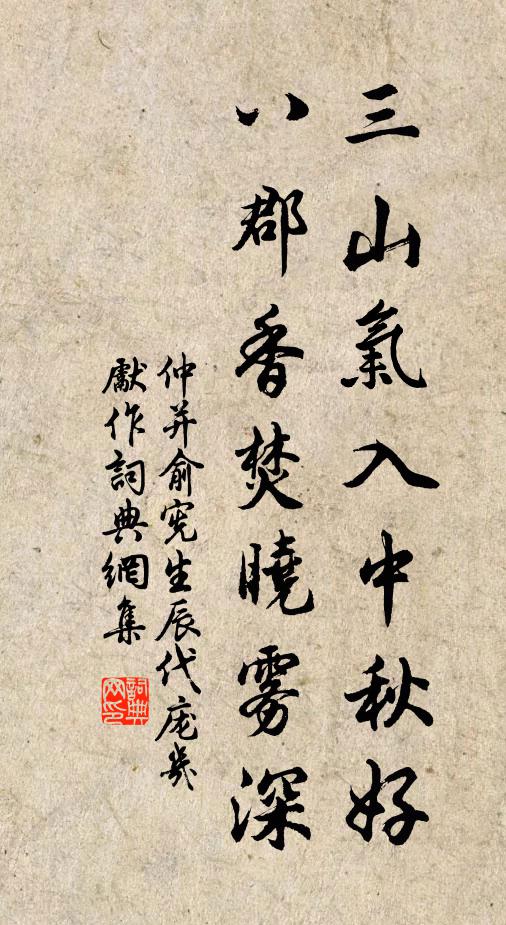 三山氣入中秋好
八郡香焚曉雾深
仲并俞宪生辰代庞几
獻作詞典網集
詞典
网印